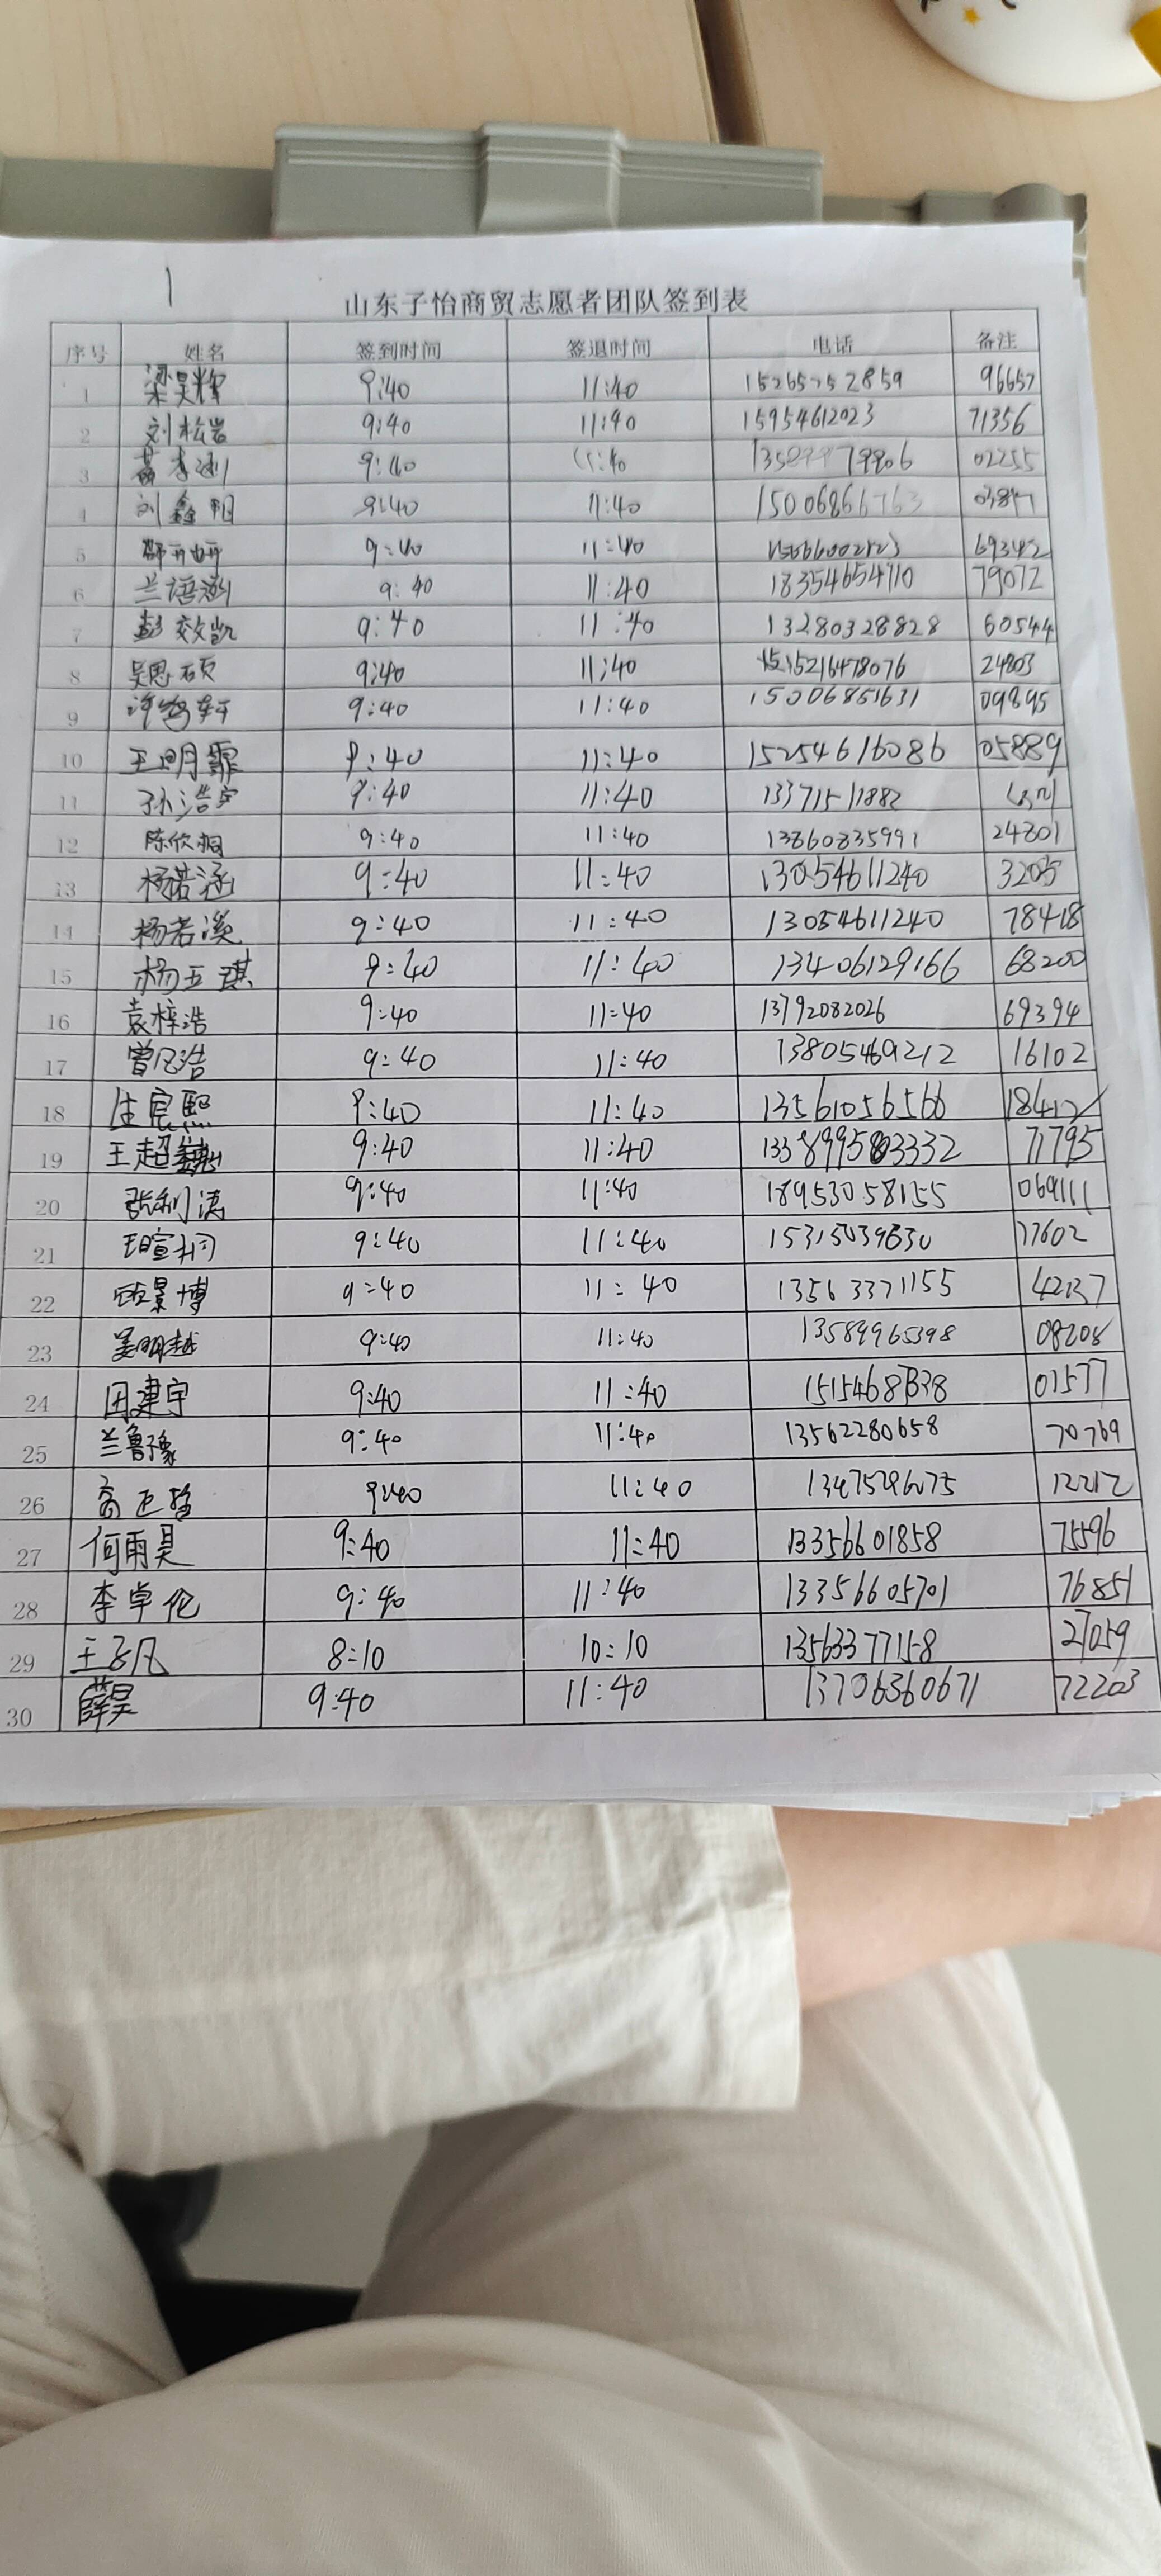 1
山东子怡商贸志愿者团队签到表
序号 姓名 签到时间 签退时间 电话 备注
1 梁昊辉 9:40 11:40 15265752859 96657
2 刘松岩 9:40 11:40 15954612023 71356
3 9:40 11:40 02255
4 刘鑫阳 9:40 11:40
5 9:40 11:40 69342
6 兰语涵 9:40 11:40 18354654710 79072
7 彭效凯 9:40 11:40 13280328828 60544
8 吴思硕 9:40 11:40 15216478076 24803
9 9:40 11:40 15006851631 09895
10 王明霏 9:40 11:40 15254616086 05889
11 孙浩宇 9:40 11:40 13371511882
12 陈欣桐 9:40 11:40 13860835991 24801
13 杨若涵 9:40 11:40 13054611240 3205
14 杨若溪 9:40 11:40 13054611240 78418
15 杨五琪 9:40 11:40 13406129166 68200
16 袁梓浩 9:40 11:40 13792082026 69394
17 曾凡浩 9:40 11:40 13805469212 16102
18 生宸熙 9:40 11:40 13561056566 18412
19 王超 9:40 11:40 71795
20 张利涛 9:40 11:40 18953058155 069111
21 9:40 11:40 15315039630 77602
22 景博 9:40 11:40 13563371155 42137
23 姜明越 9:40 11:40 13589965398 08208
24 田建宇 9:40 11:40 01577
25 兰鲁豫 9:40 11:40 13562280658 70769
26 9:40 11:40 13475296075 12212
27 何雨昊 9:40 11:40 13356601858 75596
28 李卓伦 9:40 11:40 13356605701 76851
29 王子凡 8:10 10:10 13563377158 27059
30 薛昊 9:40 11:40 13706360671 72203